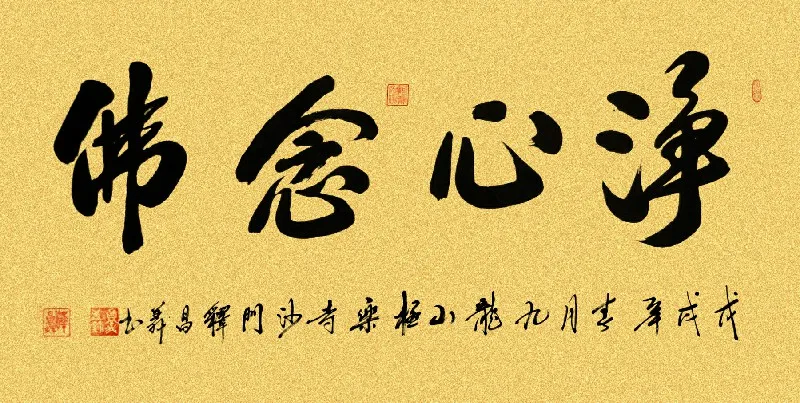 淨心念佛
戊戌年春月九龍山極樂寺沙門釋昌莽書